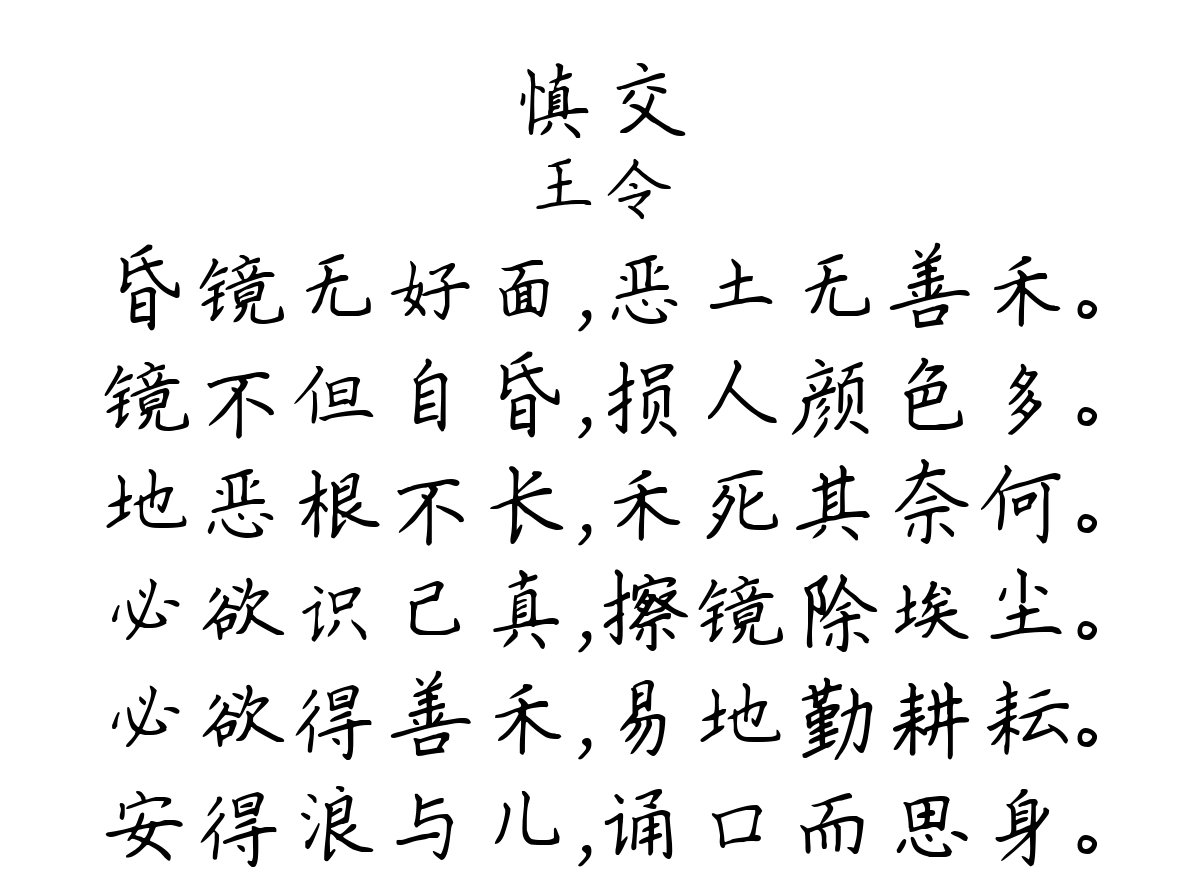 慎交
王令
昏镜无好面,恶土无善禾。
镜不但自昏,损人颜色多。
地恶根不长,禾死其奈何。
必欲识己真,擦镜除埃尘。
必欲得善禾,易地勤耕耘。
安得浪与儿,诵口而思身。